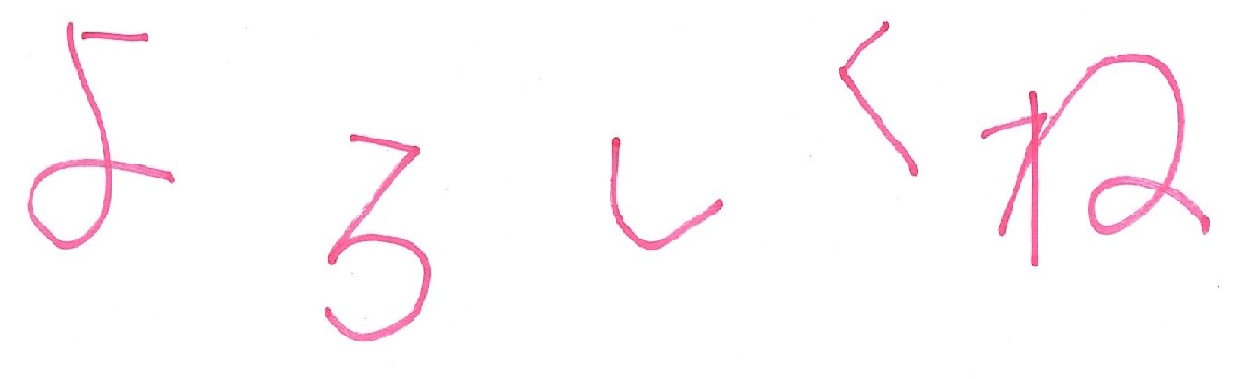 よろしくね